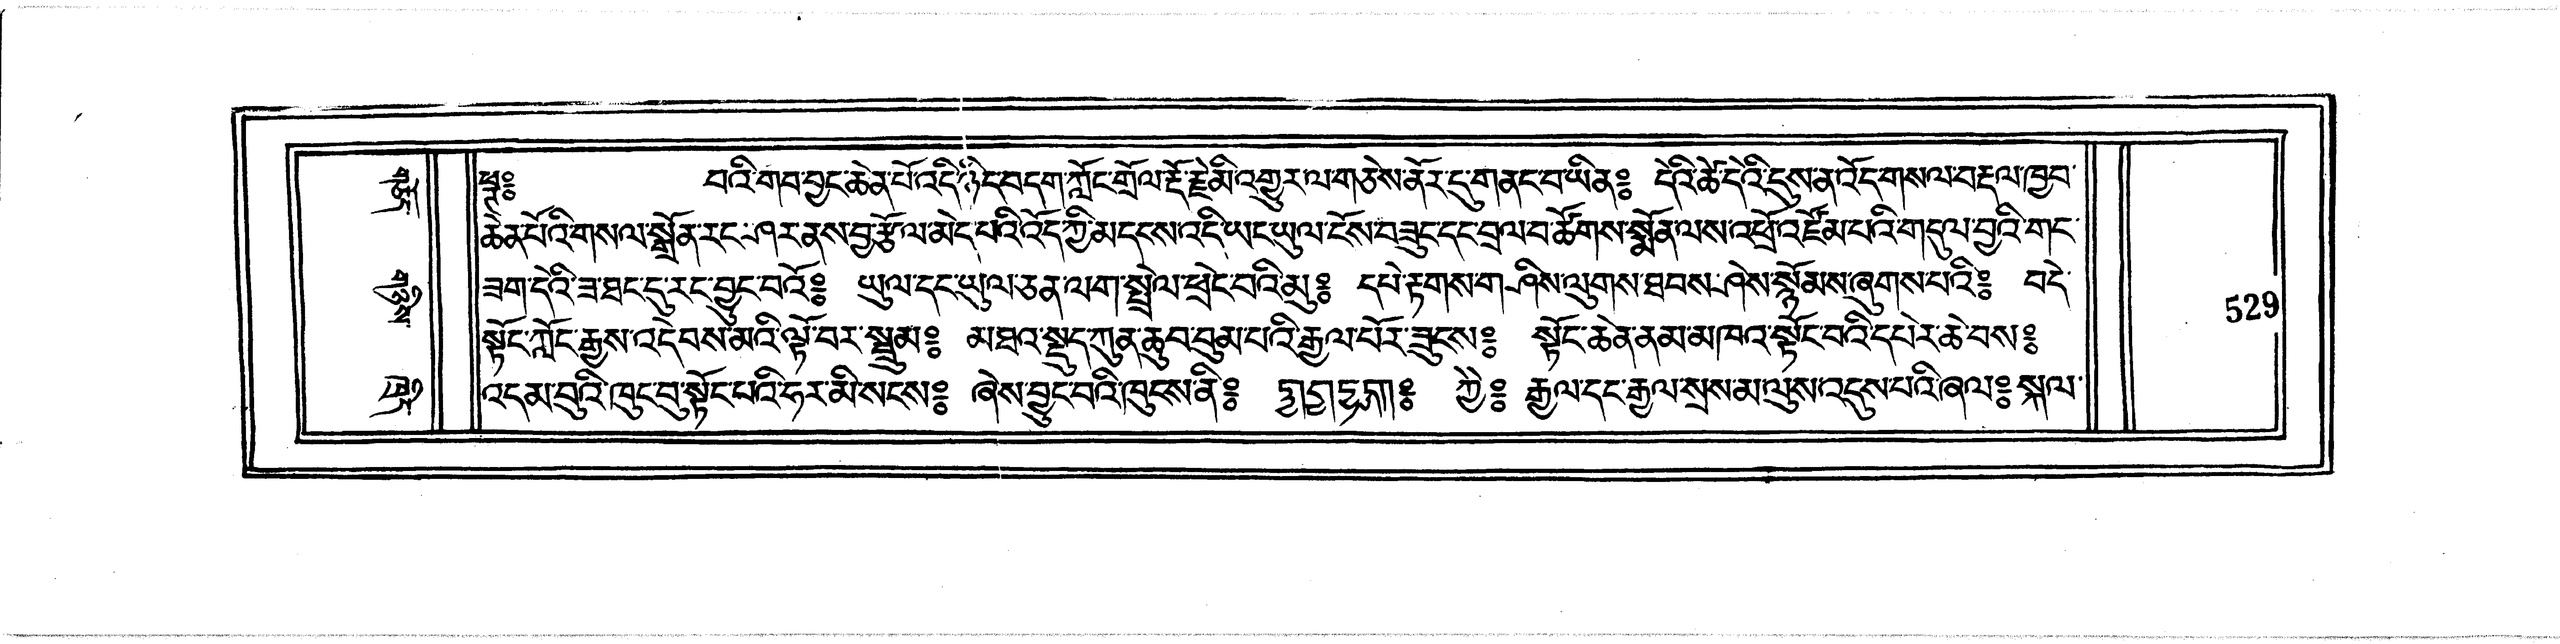 ༄༅༔ བའི་གབ་བྱང་ཆེན་པོ་འདི་ཉིད་བདག་ཀློང་གྲོལ་རྡོ་རྗེ་མི་འགྱུར་ལ་གཅེས་ནོར་དུ་གནང་བ་ཡིན༔ དེའི་ཚེ་དེའི་དུས་ན་འོད་གསལ་བརྡལ་ཁྱབ་
ཆེན་པོའི་གསལ་སྒྲོན་རང་ཤར་ནས་བྱ་རྩོལ་མེད་པའི་འོད་ཀྱི་མདངས་འདི་ཡང་ཡུལ་ངོས་བཟུང་དང་བྲལ་བ་ཚོགས་སྨོན་ལས་འཕྲོ་འཛོམ་པའི་གདུལ་བྱའི་གང་
ཟག་དེའི་ཟ་ཐང་དུ་རང་བྱུང་བའོ༔ ཡུལ་དང་ཡུལ་ཅན་ལག་སྤྲེལ་ཕྲེང་བའི་མུ༔ དཔེ་རྟགས་གཤིས་ལུགས་ཐབས་ཤེས་སྙོམས་ཞུགས་པའི༔ བདེ་
སྟོང་ཀློང་རྒྱས་འདེབས་མའི་ལྟོ་བར་སྦྲུམ༔ མཐའ་སྡུད་ཀུན་ཆུབ་བུམ་པའི་རྒྱལ་པོར་ཟུངས༔ སྟོང་ཆེན་ནམ་མཁའ་སྟོང་བའི་དཔེར་ཆེ་བས༔
འདམ་བུའི་ཁུང་བུ་སྟོང་པའི་ཧར་མི་སངས༔ ཞེས་བྱུང་བའི་ཁུངས་ནི༔ ཀྱེ༔ རྒྱལ་དང་རྒྱལ་སྲས་མ་ལུས་འདུས་པའི་ཞལ༔ སྐལ་
529